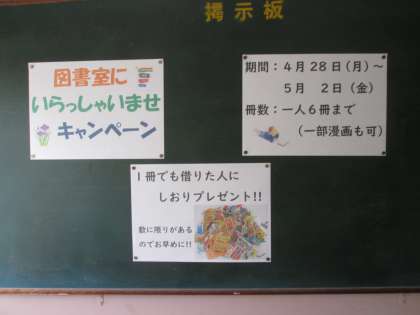 掲示板
図書室に
いらっしゃいませ
キャンペーン
期間：４月28日(月)～
５月　２日（金）
冊数：一人６冊まで
（一部漫画も可）
１冊でも借りた人に
しおりプレゼント!!
数に限りがある
のでお早めに!!